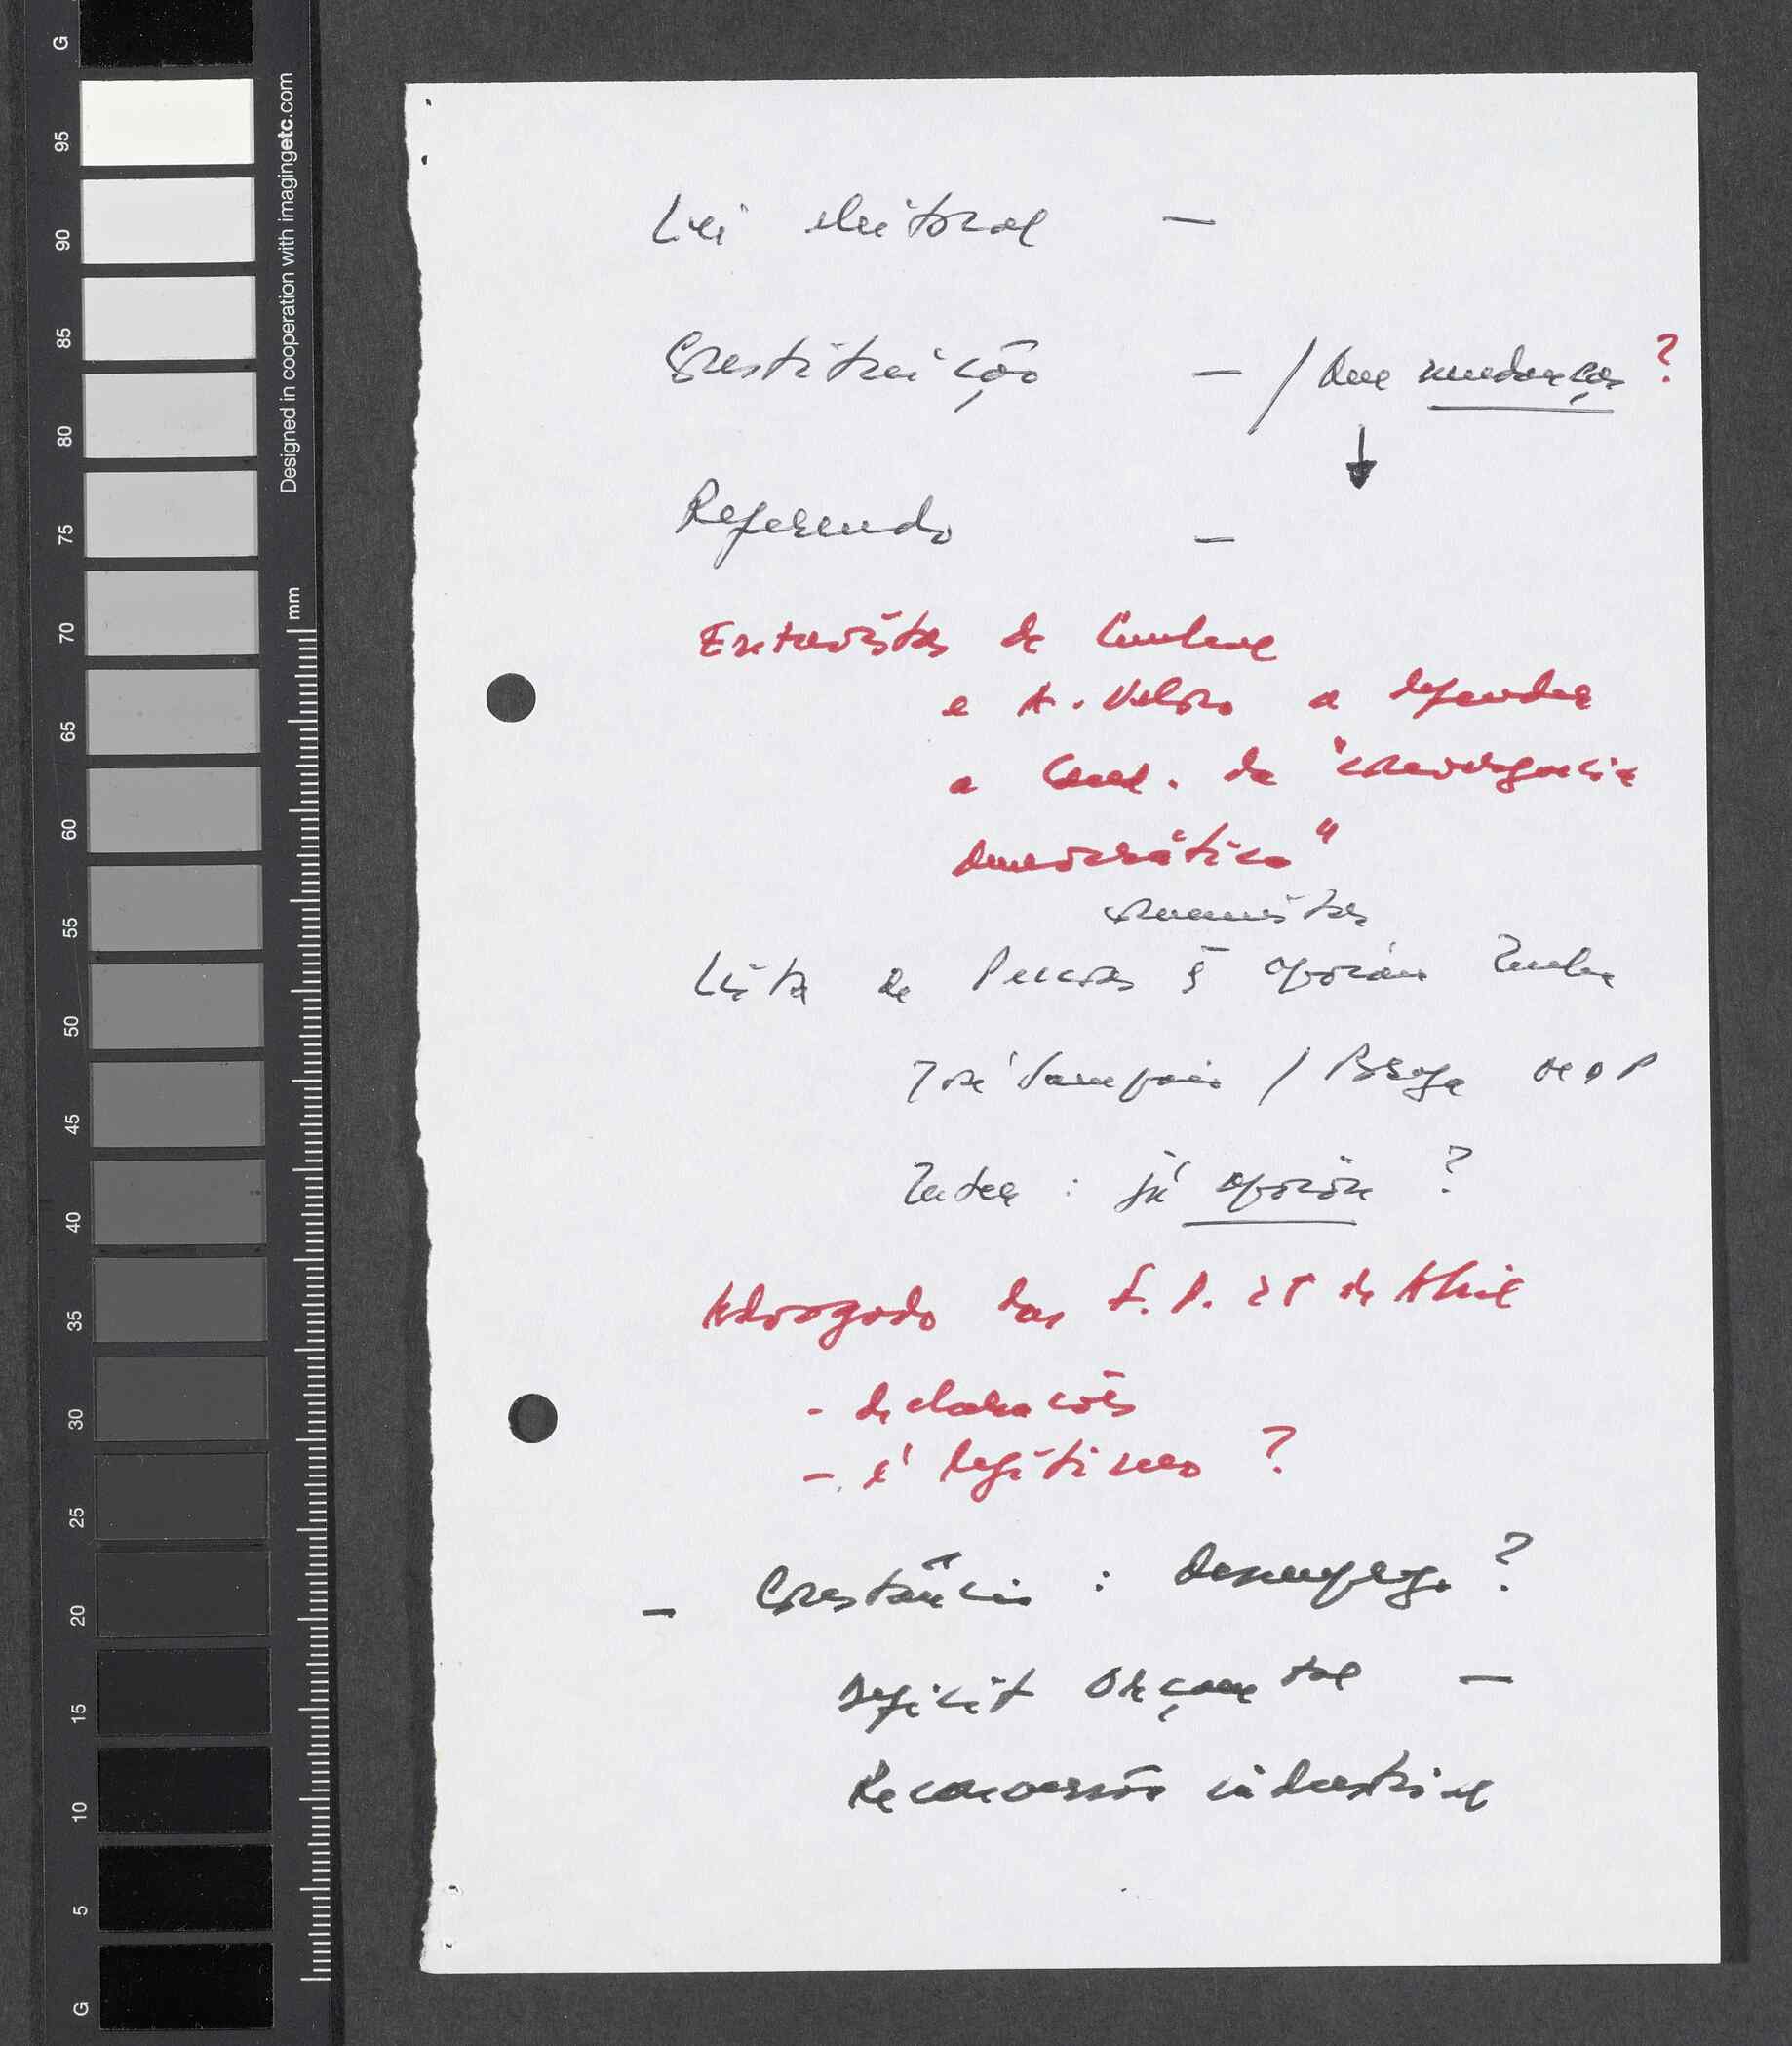 G
95
90
85
80
75
70
65
60
55
50
45
40
35
30
25
20
15
10
5
G
Designed in cooperation with imagingetc.com
mm
Lei eleitoral —
Constituição — / Que mudanças ?
Referendo —
Entrevistas de Cunhal
e A. Veloso a defender
a Cand. da "convergência
democrática"
comunistas
Lista de Pessoas q̃ apoiam
José Sampaio / Braga
: já apoiou ?
Advogado das F.P. 25 de Abril
- declarações
- é legítimo ?
- Constâncio : Desemprego ?
Deficit Orçamental —
Reconversão industrial